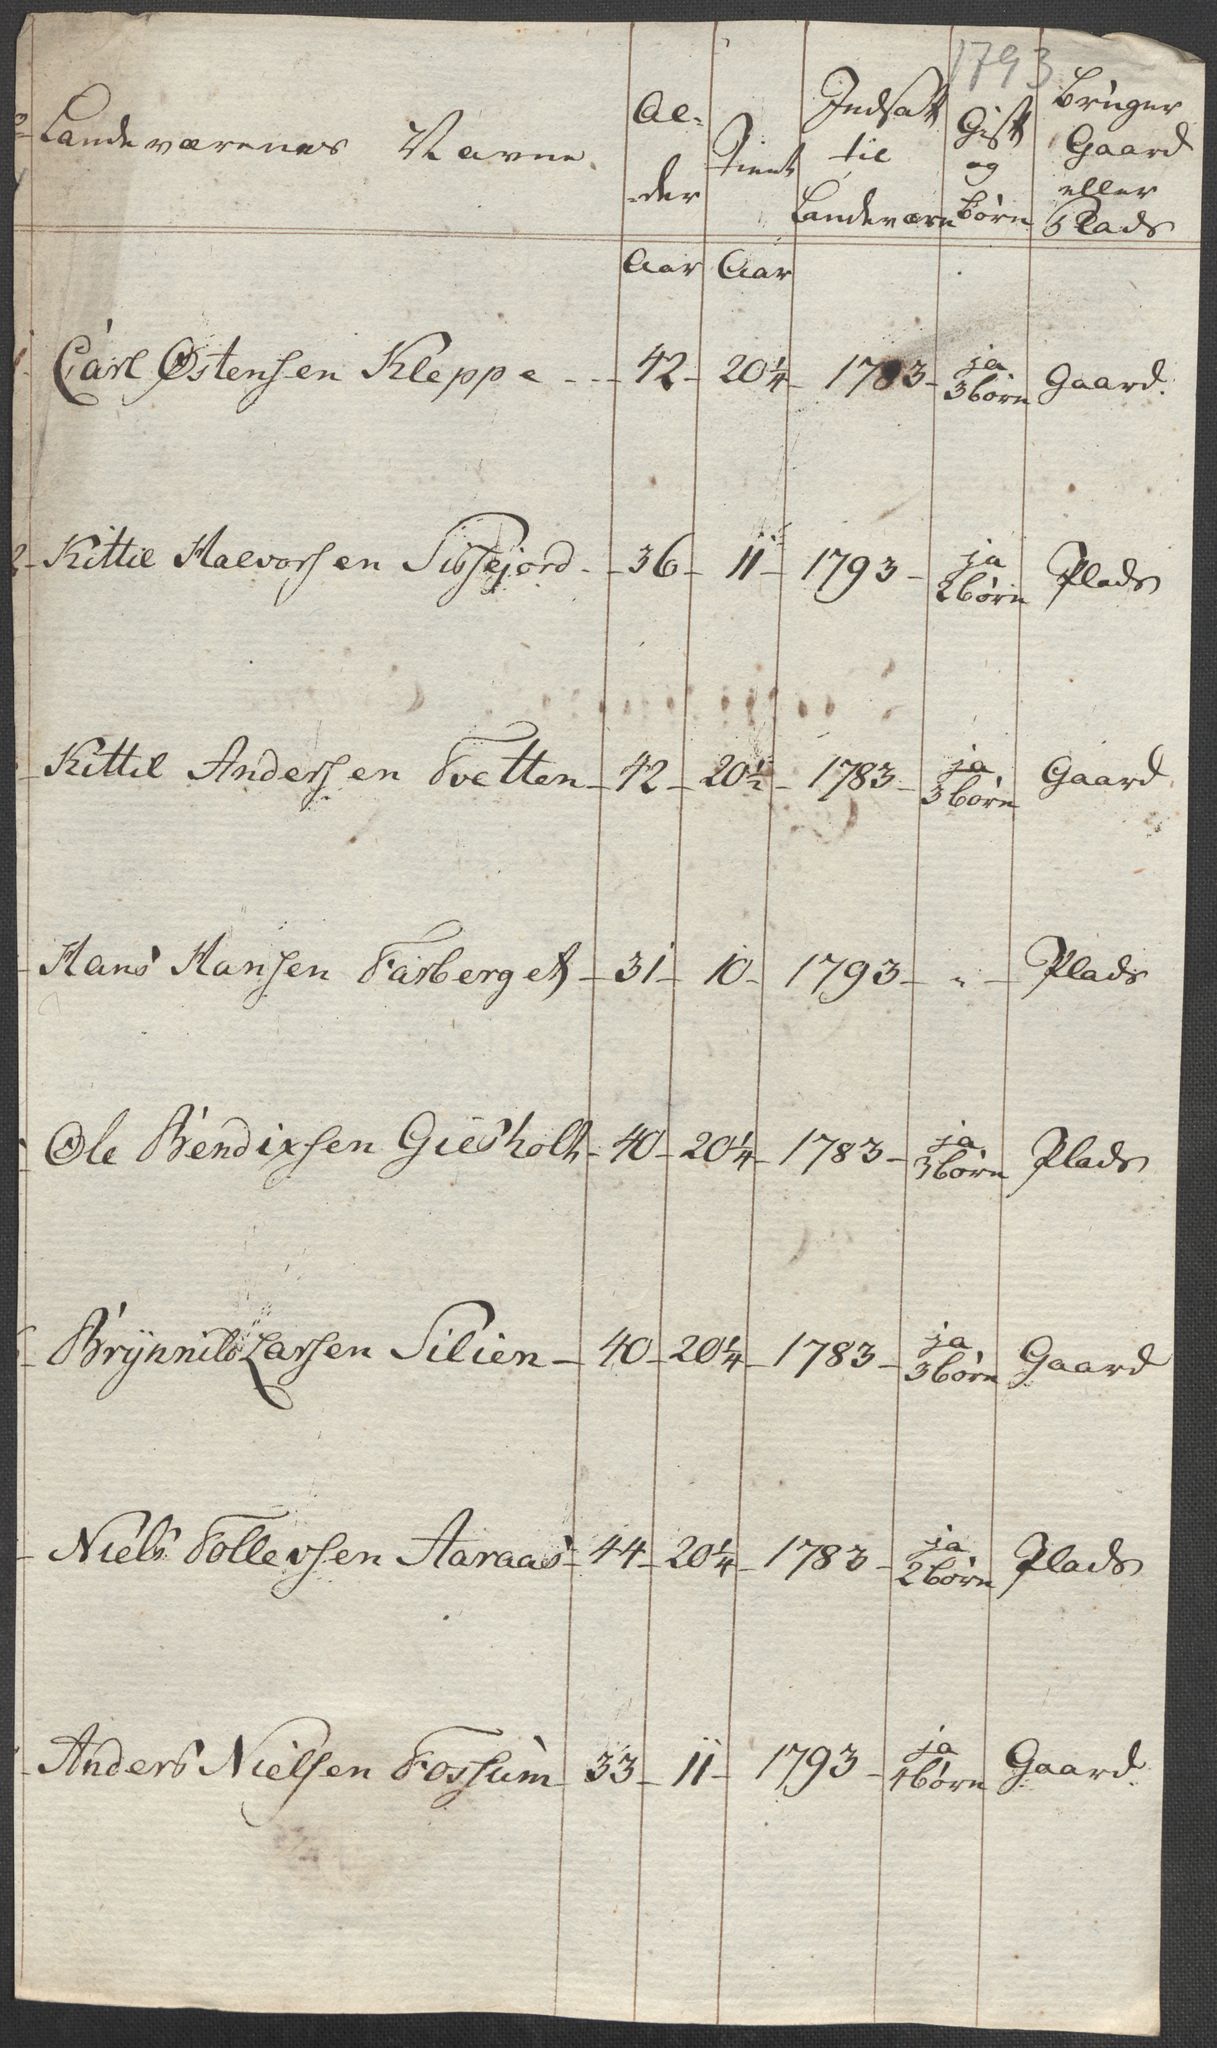 1793
Landeværenes Navne. Al-der Tient Indsatt til Landeværn Gift og børn Bruger Gaard eller Plads
Aar Aar
Carl Østensen Kleppe - - 42 - 20¼ - 1783 - ja 3 børn Gaard.
2 - Kittil Halvorsen Sissejord - - 36 - 11 - 1793 - ja 2 børn Plads
- Kittil Andersen Tvetten - 42 - 20½ - 1783 - ja 3 børn Gaard
- Hans Hansen Farberget - 31 - 10 - 1793 - " - Plads
Ole Bendixsen Giesholt - 40 - 20¼ - 1783 - ja 3 børn Plads
- Brÿnnild Larsen Silien - 40 - 20¼ - 1783 - ja 3 børn Gaard
- Niels Tollevsen Aaraas - 44 - 20¼ - 1783 - ja 2 børn Plads
- Anders Nielsen Fossum - 33 - 11 - 1793 - ja 4 børn Gaard.